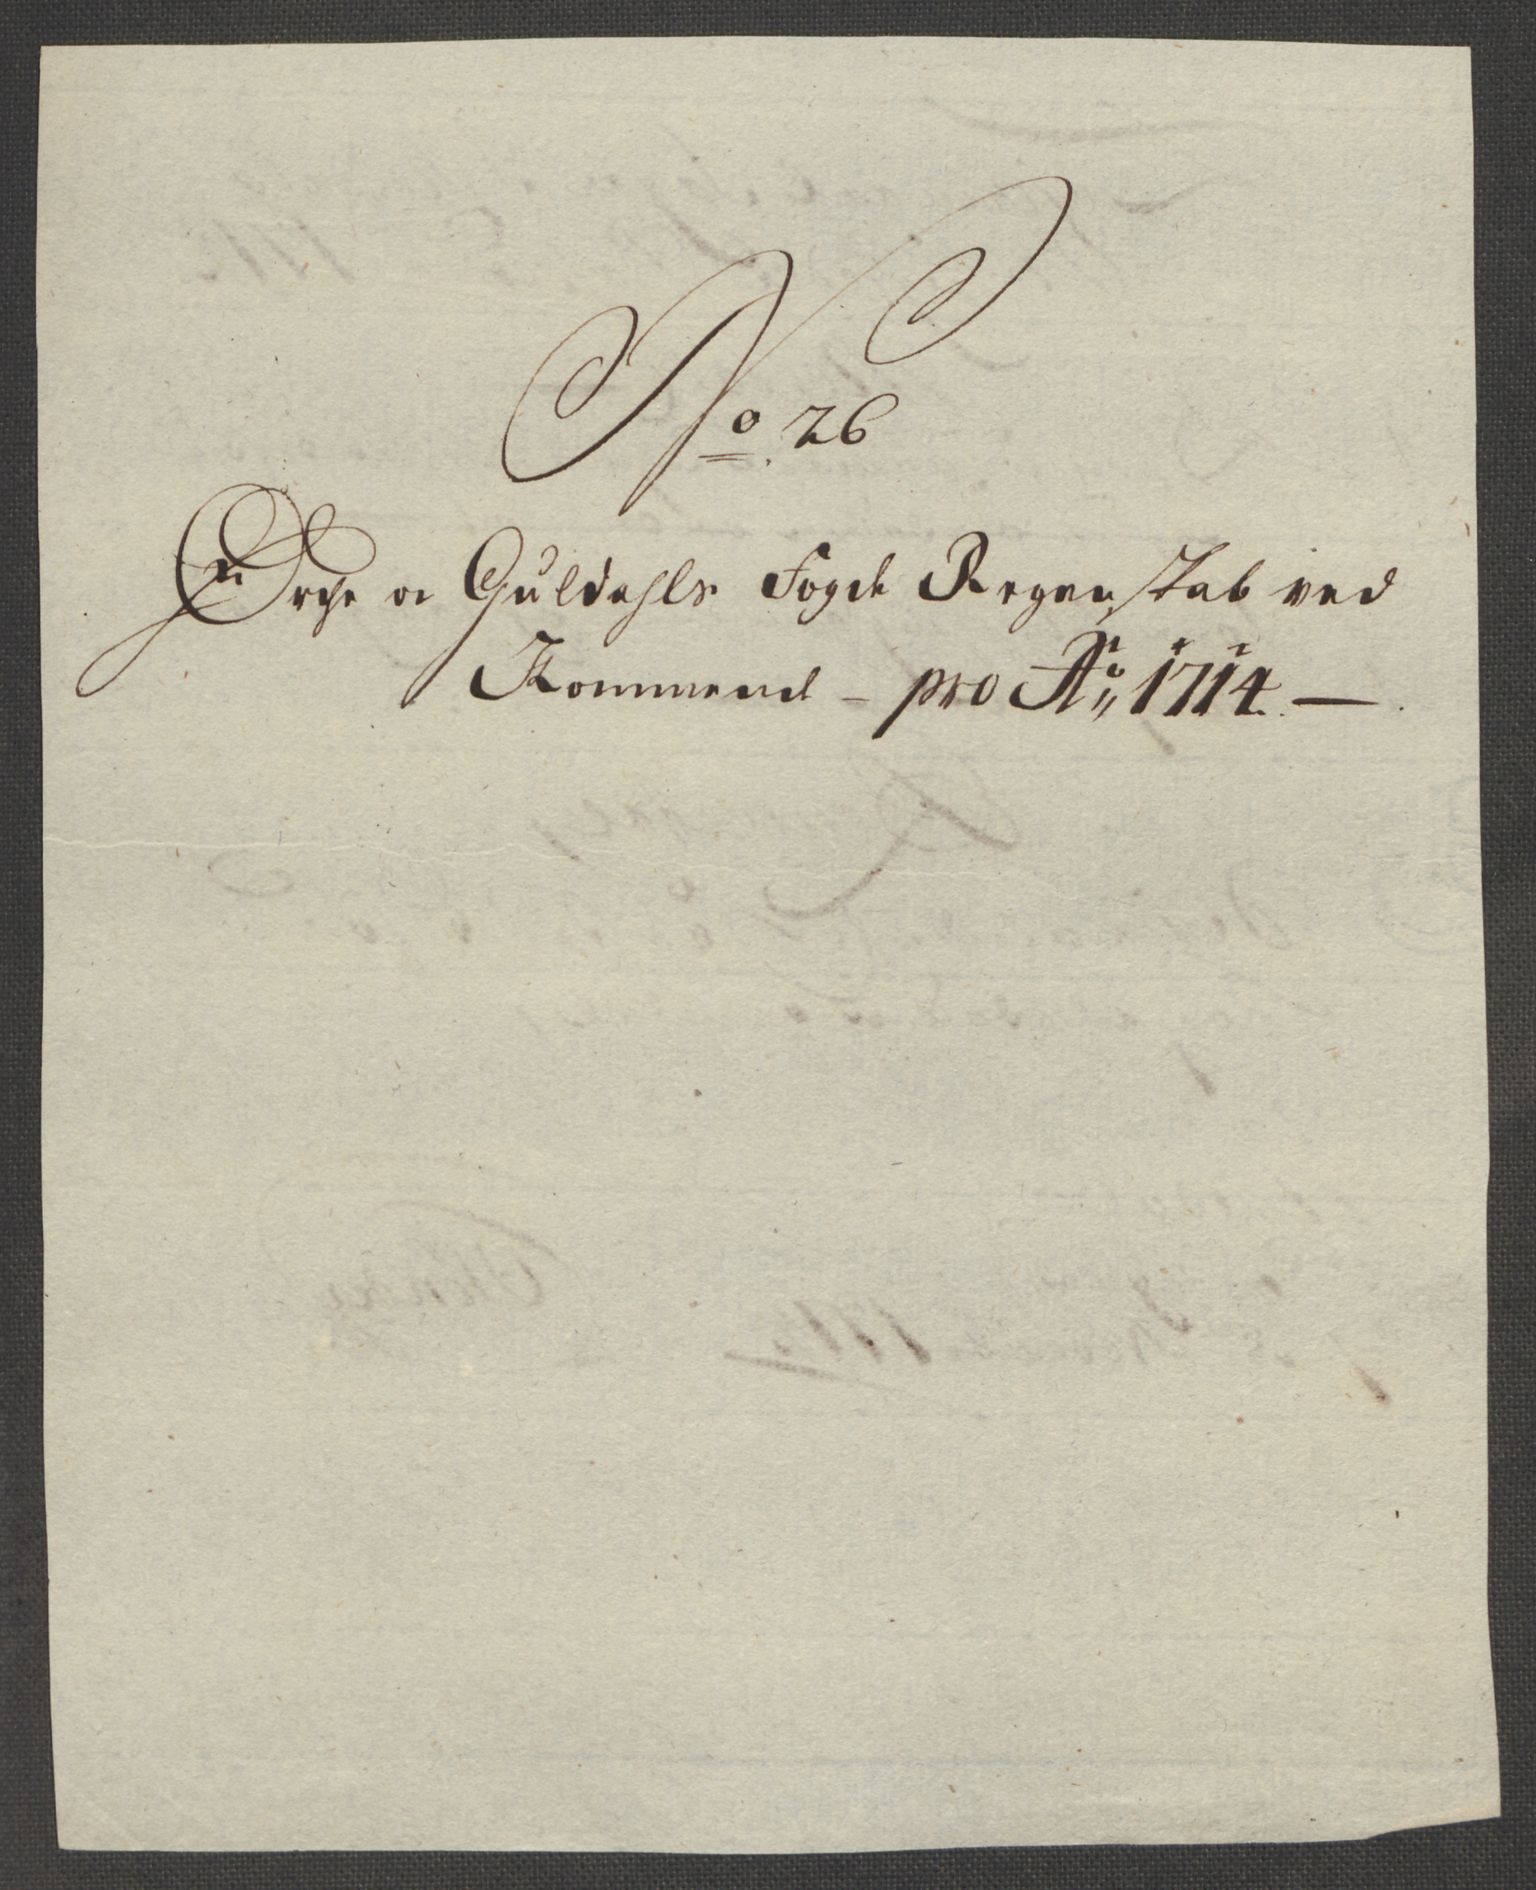 No. 26
Orche oc Guldahls Fogde Regenskab ved
Kommend - pro Ao, 1714. -